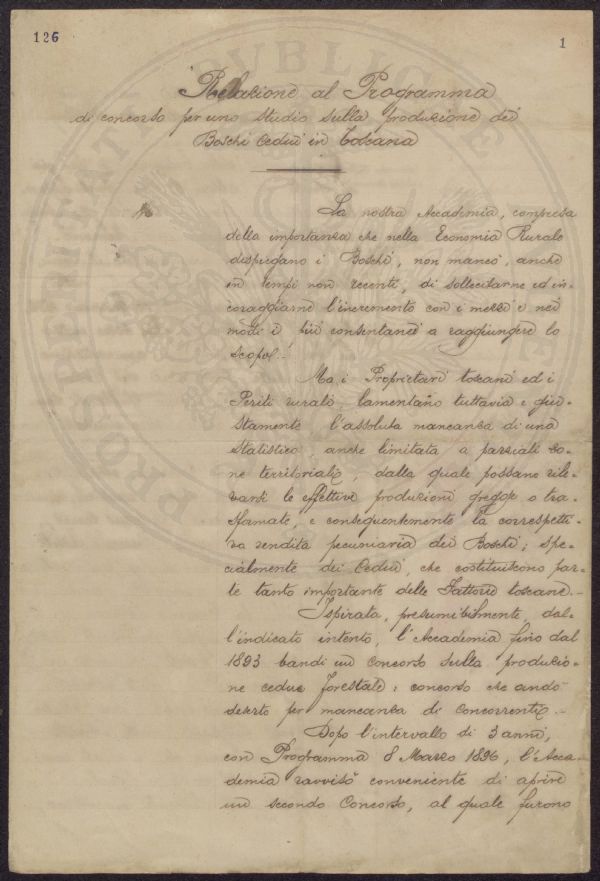 126
1
Relazione al Programma
di concorso per uno studio sulla produzione dei
Boschi Cedui in Toscana
La nostra Accademia, compresa
della importanza che nella Economia Rurale
dispiegano i Boschi, non mancò, anche
in tempi non recenti, di sollecitarne ed in-
coraggiarne l'incremento con i mezzi e nei
modi i più consentanei a raggiungere lo
scopo.
Ma i Proprietari toscani ed i
Periti rurali, lamentano tuttavia e giu-
stamente l'assoluta mancanza di una
Statistica, anche limitata a parziali zo-
ne territoriali, dalla quale possano rile-
varsi le effettive produzioni gregge o tra-
sformate, e conseguentemente la correspetti-
va rendita pecuniaria dei Boschi; spe-
cialmente dei Cedui, che costituiscono par-
te tanto importante delle Fattorie toscane.-
Ispirata, presumibilmente, dal-
l'indicato intento, l'Accademia fino dal
1893 bandì un Concorso sulla produzio-
ne cedua forestale: concorso che andò
deserto per mancanza di Concorrenti.-
Dopo l'intervallo di 3 anni,
con Programma 8 Marzo 1896, l'Acca-
demia ravvisò conveniente di aprire
un secondo Concorso, al quale furono
PROSPERITATI PUBLICAE